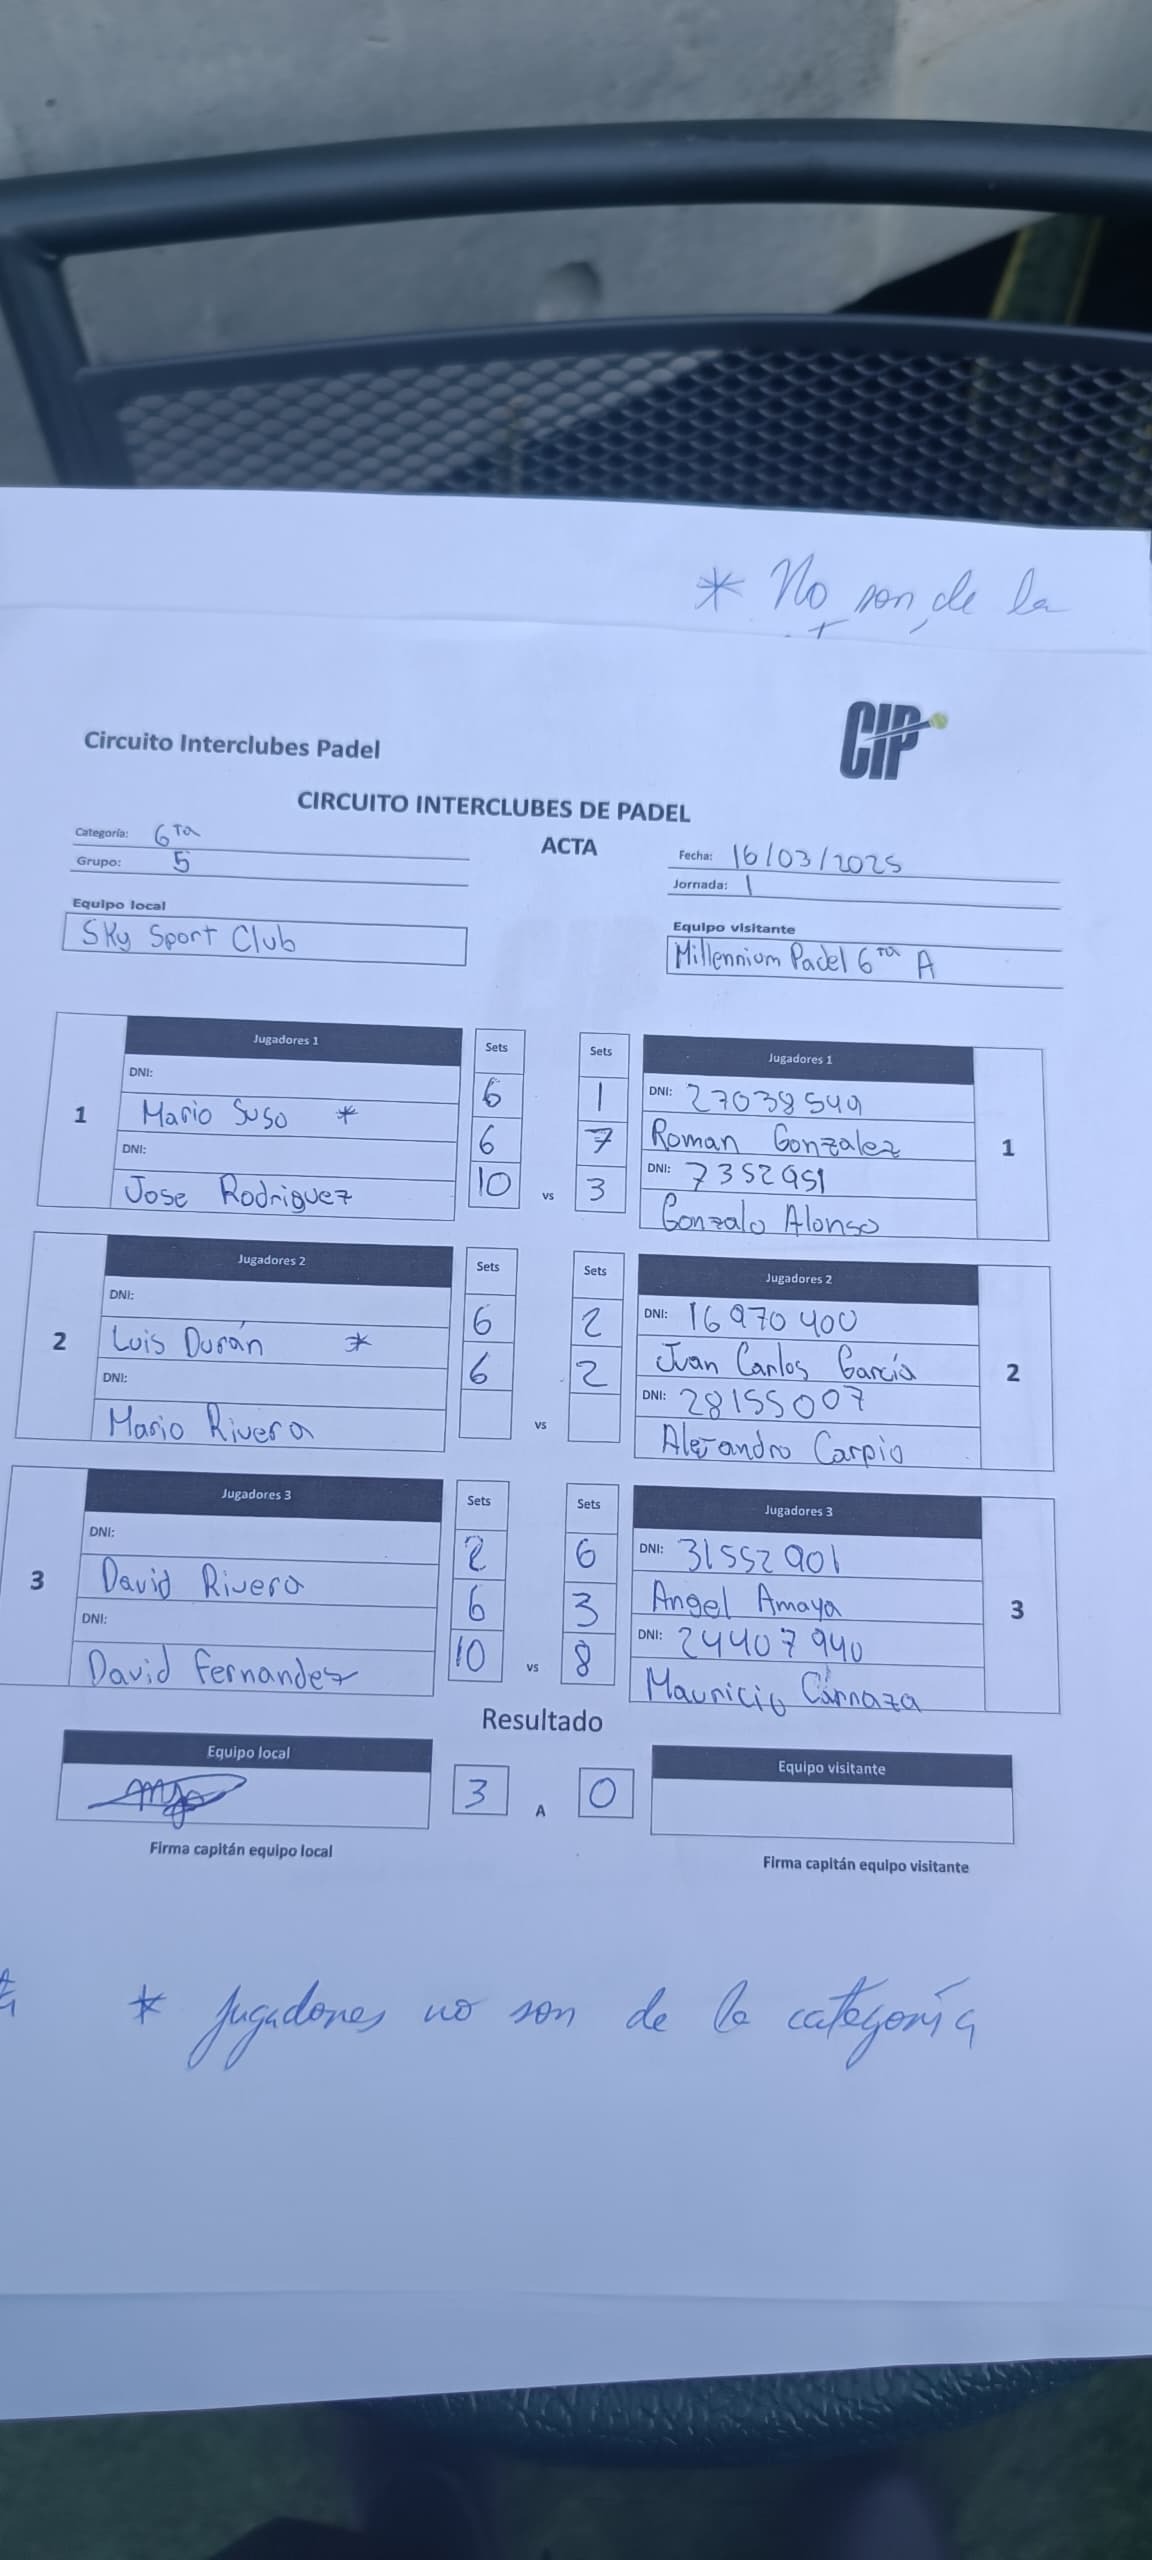 * No son de la
CIP
Circuito Interclubes Padel
CIRCUITO INTERCLUBES DE PADEL
ACTA
Categoría: 6ta
Grupo: 5
Fecha: 16/03/2025
Jornada: 1
Equipo local
Sky Sport Club
Equipo visitante
Millennium Padel 6ta A
1
Jugadores 1
DNI:
Mario Suso *
DNI:
Jose Rodriguez
Sets
6
6
10
vs
Sets
1
7
3
Jugadores 1
DNI: 27038549
Roman Gonzalez
DNI: 7352951
Gonzalo Alonso
1
2
Jugadores 2
DNI:
Luis Durán *
DNI:
Mario Rivera
Sets
6
6
vs
Sets
2
2
Jugadores 2
DNI: 16970400
Juan Carlos García
DNI: 28155007
Alejandro Carpio
2
3
Jugadores 3
DNI:
David Rivera
DNI:
David Fernandez
Sets
2
6
10
vs
Sets
6
3
8
Jugadores 3
DNI: 31552901
Angel Amaya
DNI: 24407940
Mauricio Cárnaza
3
Resultado
Equipo local
3 A 0
Equipo visitante
Firma capitán equipo local
Firma capitán equipo visitante
* Jugadores no son de la categoría